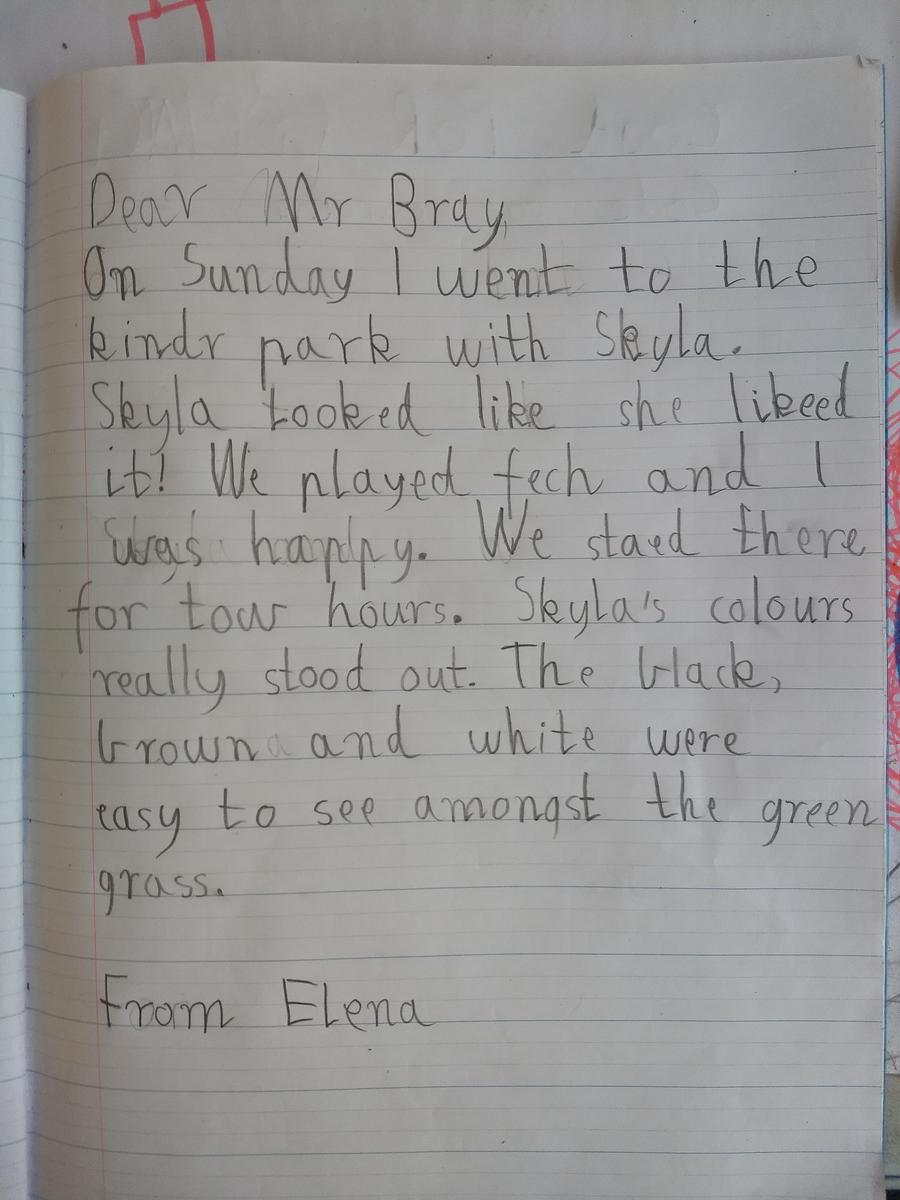 Dear Mr Bray,
On Sunday I went to the
kindr park with Skyla.
Skyla tooked like she likeed
it! We played fech and I
was happy. We staed there
for tow hours. Skyla's colours
really stood out. The black,
brown and white were
easy to see amongst the green
grass.
From Elena